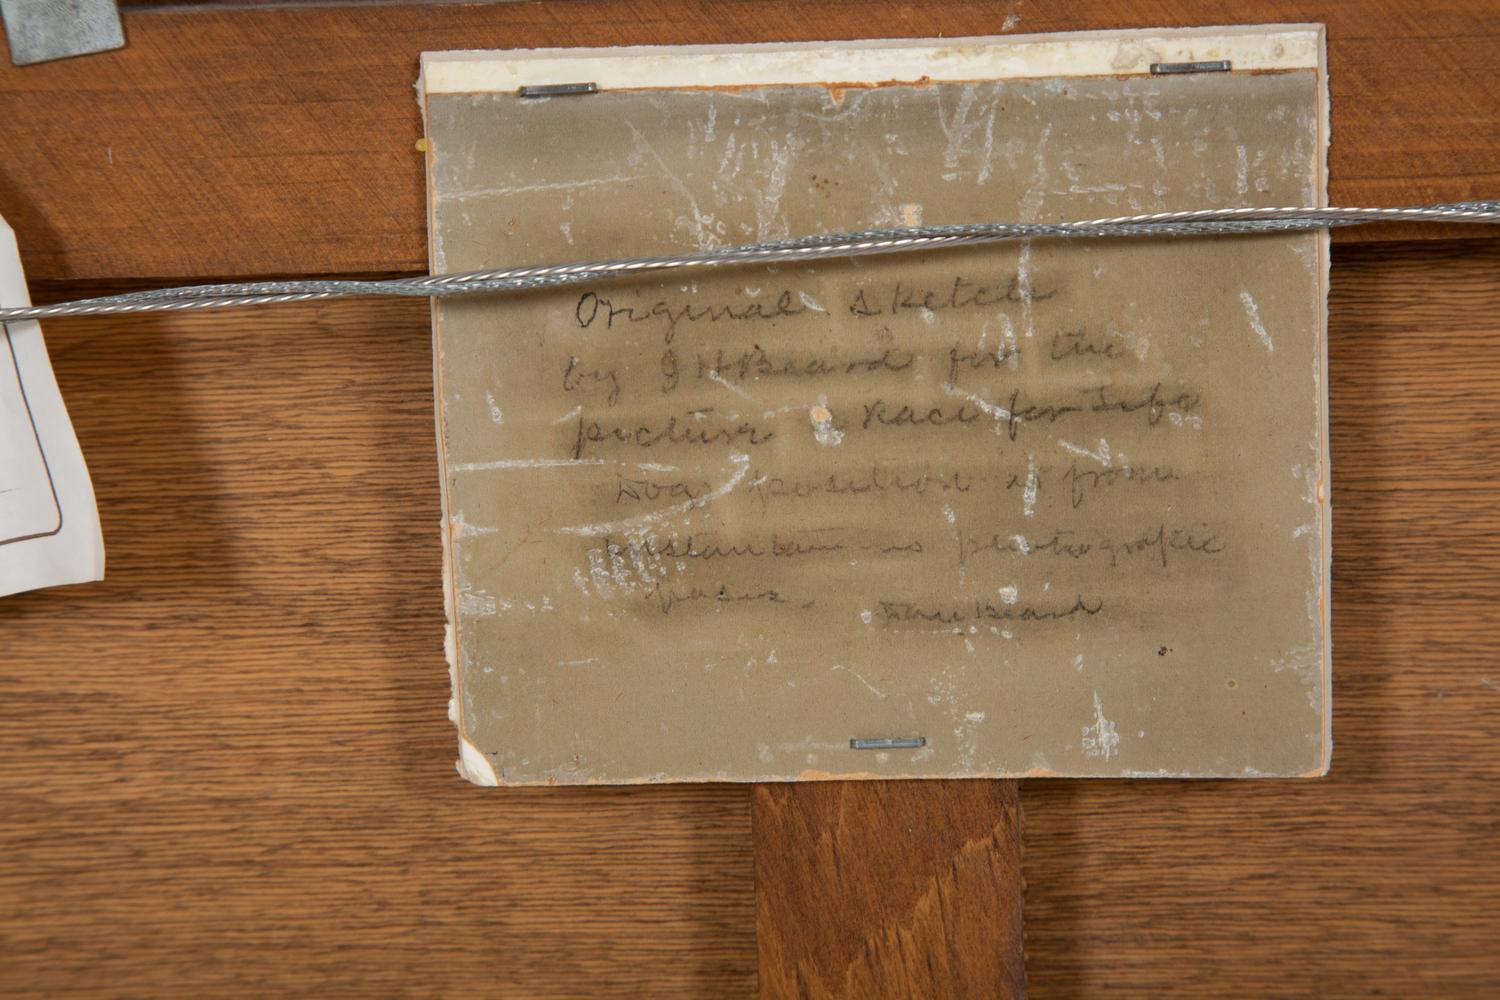 Original sketch
by J H Beard for the
picture a Race for Life
Dogs position is from
instantaneous photografic
poses. Dan Beard